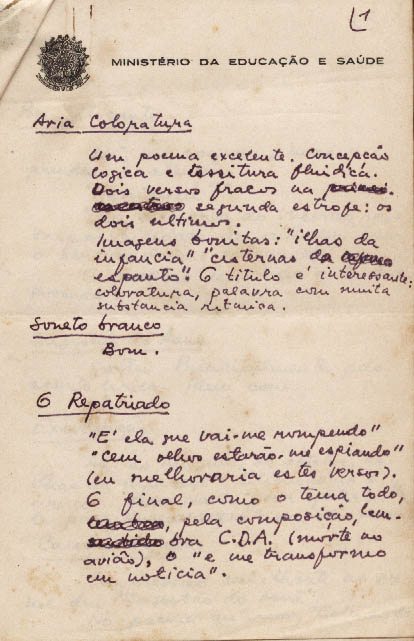 1
MINISTÉRIO DA EDUCAÇÃO E SAÚDE
Aria Coloratura
Um poema excelente. Concepção
logica e tessitura fluidica.
Dois versos fracos na
segunda estrofe: os
dois ultimos.
Imagens bonitas: "ilhas da
infancia" "cisternas do
espanto". O titulo é interessante:
coloratura, palavra com muita
substancia ritmica.
Soneto branco
Bom.
O Repatriado
"E' ela me vai-me rompendo"
"Cem olhos estarão-me espiando"
(eu melhoraria estes versos).
O final, como o tema todo,
pela composição, lem-
bra C.D.A. (morte no
avião), o "e me transformo
em notícia".